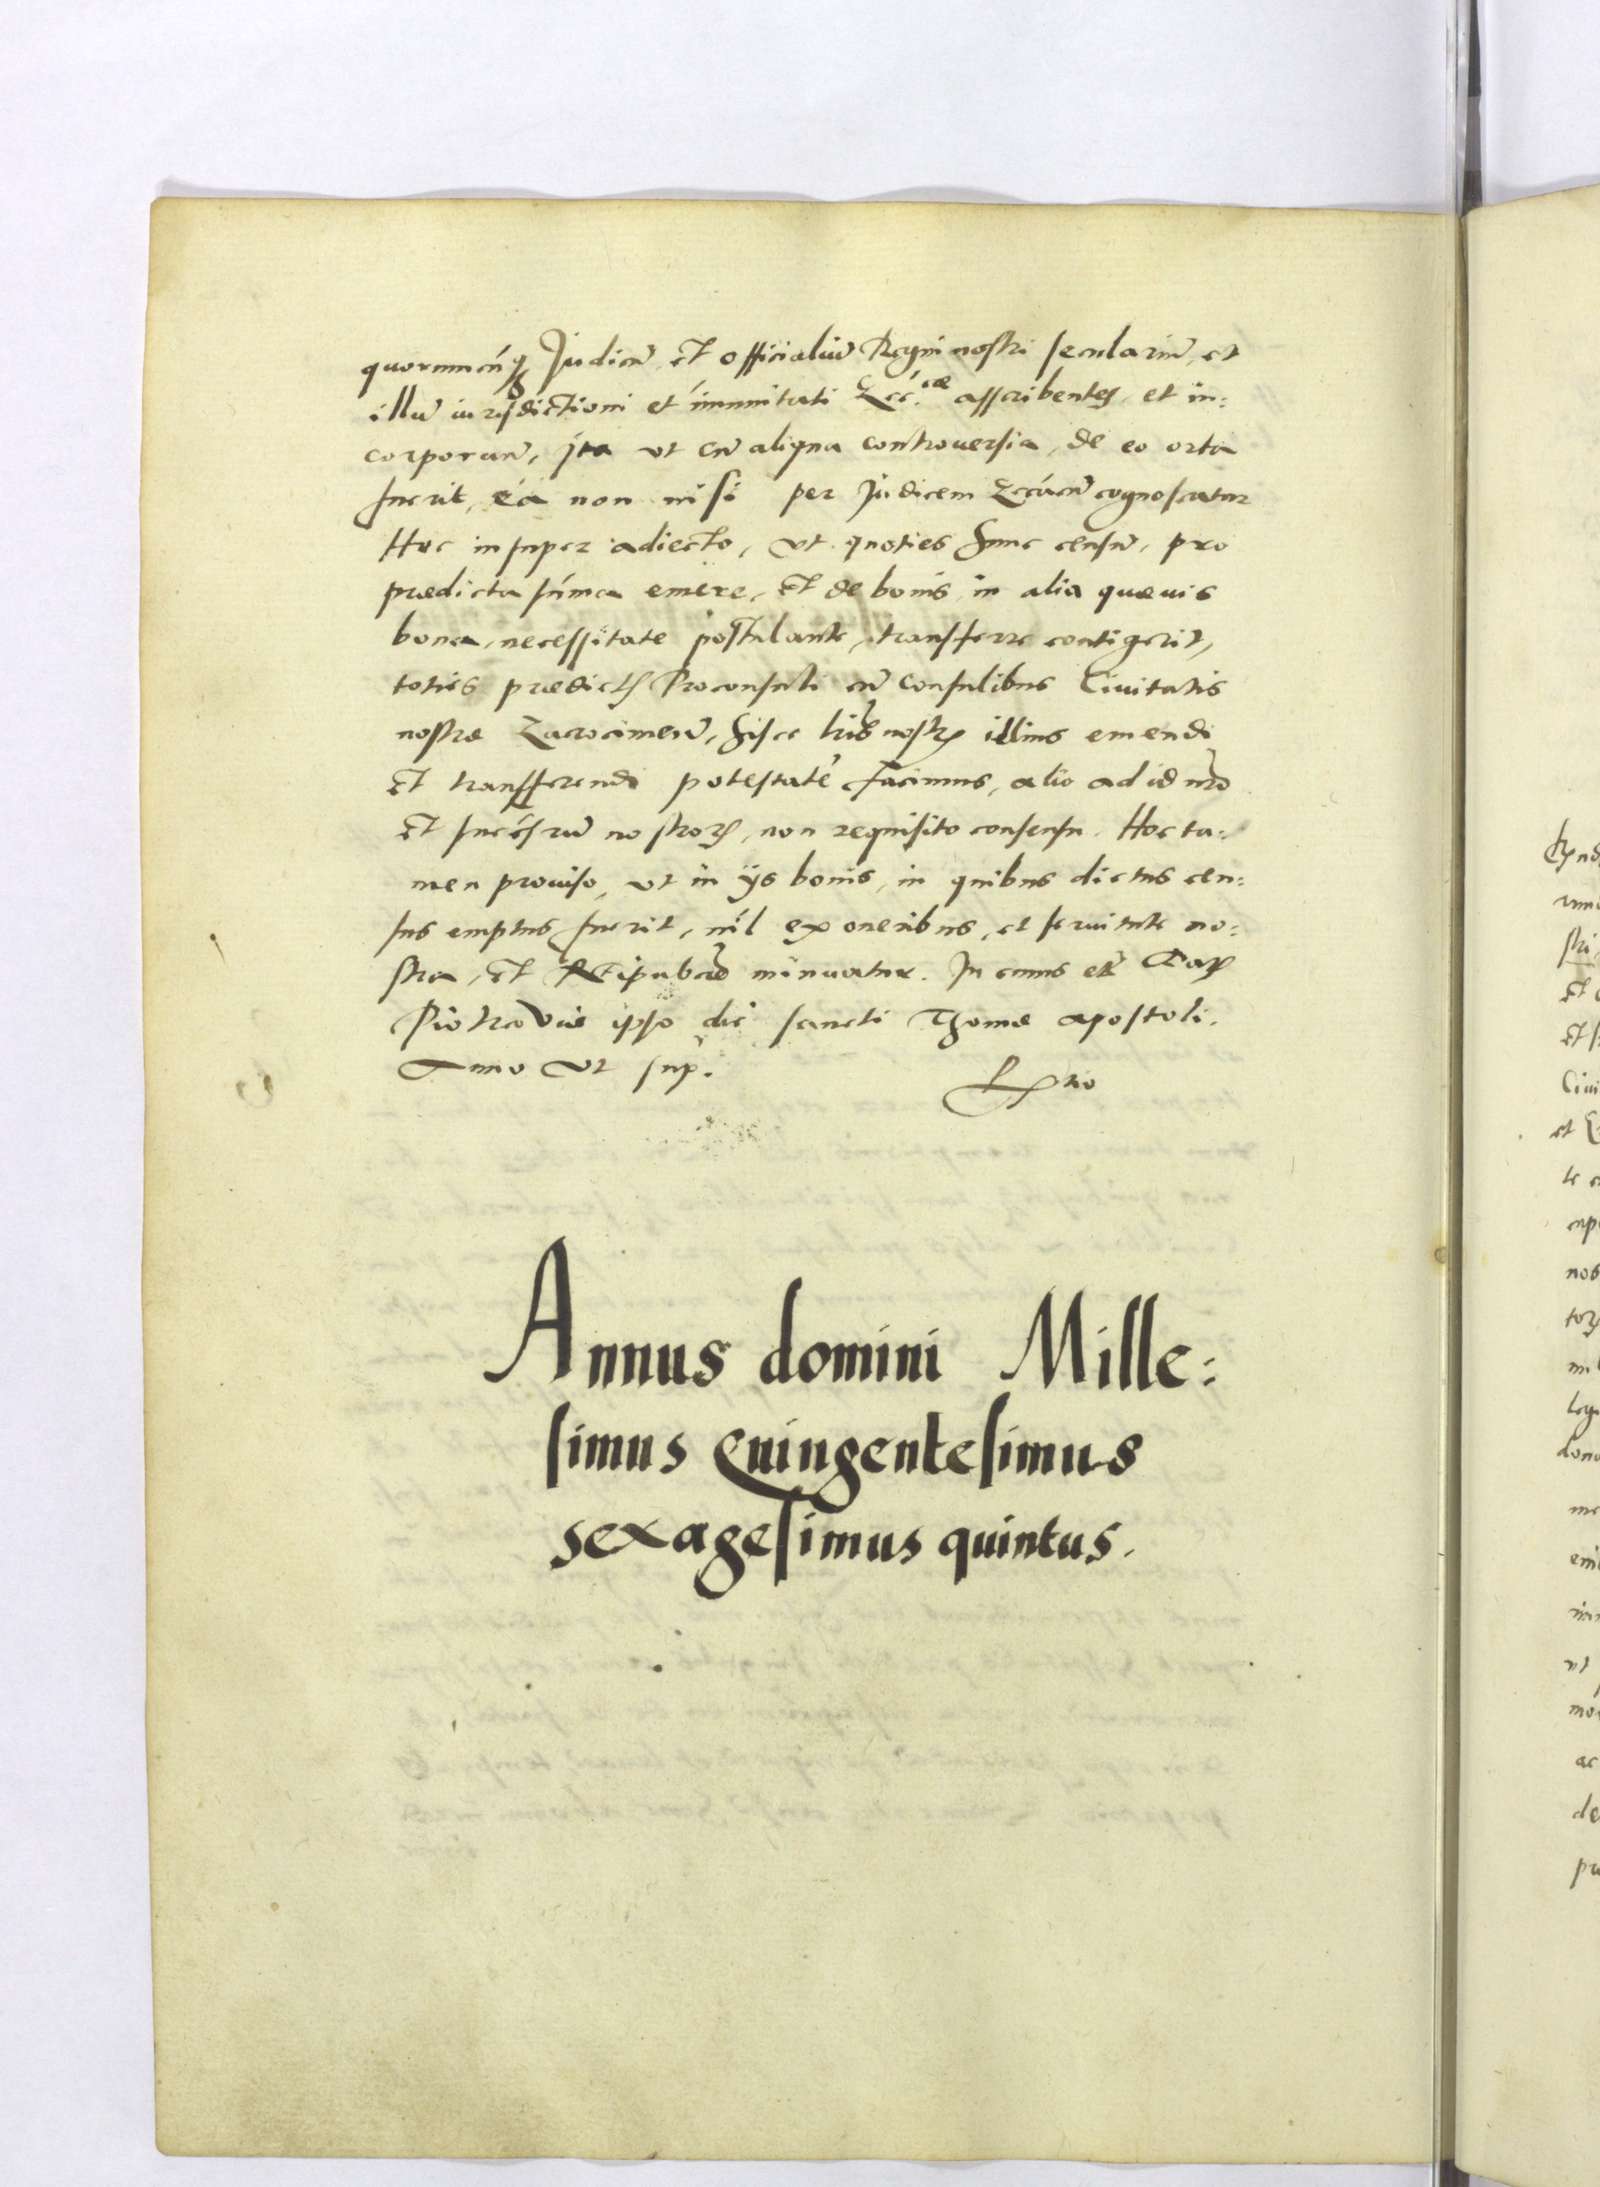 quorumcunq Judicū, et officialiū Regni nostri seculariū, et
illū iurisdictioni et īmunitati Ecc.cae asscribentes, et in:
corporan̄, jta vt cū aliqua controuersia, de eo orta
fuerit, ea non nisi per Judicem Ecc̄acū cognoscatur
Hoc insuper adiecto, vt quoties hunc censū, pro
praedicta sūma emere, et de bonis in alia quaeuis
bona, necessitate postulante, transferre contigerit,
toties praedictis Proconsuli cū Consulibus Ciuitatis
nostrae Zacrocimeñ, hisce lr̄is nostris illius emendi
et transfferendi potestatē facimus, alio ad id nr̄o
et succ̄sorū nostrorꝝ, non requisito consensu. Hoc ta:
men prouiso, vt in ijs bonis, in quibus dictus cen:
sus emptus fuerit, nīl ex oneribus, et seruitute no:
stra, et Reipub minuatur. In cuius etc̄ Dat
Piotrcoviae ipso die sancti Thomae apostoli.
Anno vt sup̄.
Annus domini Mille:
simus Quingentesimus
sexagesimus quintus.